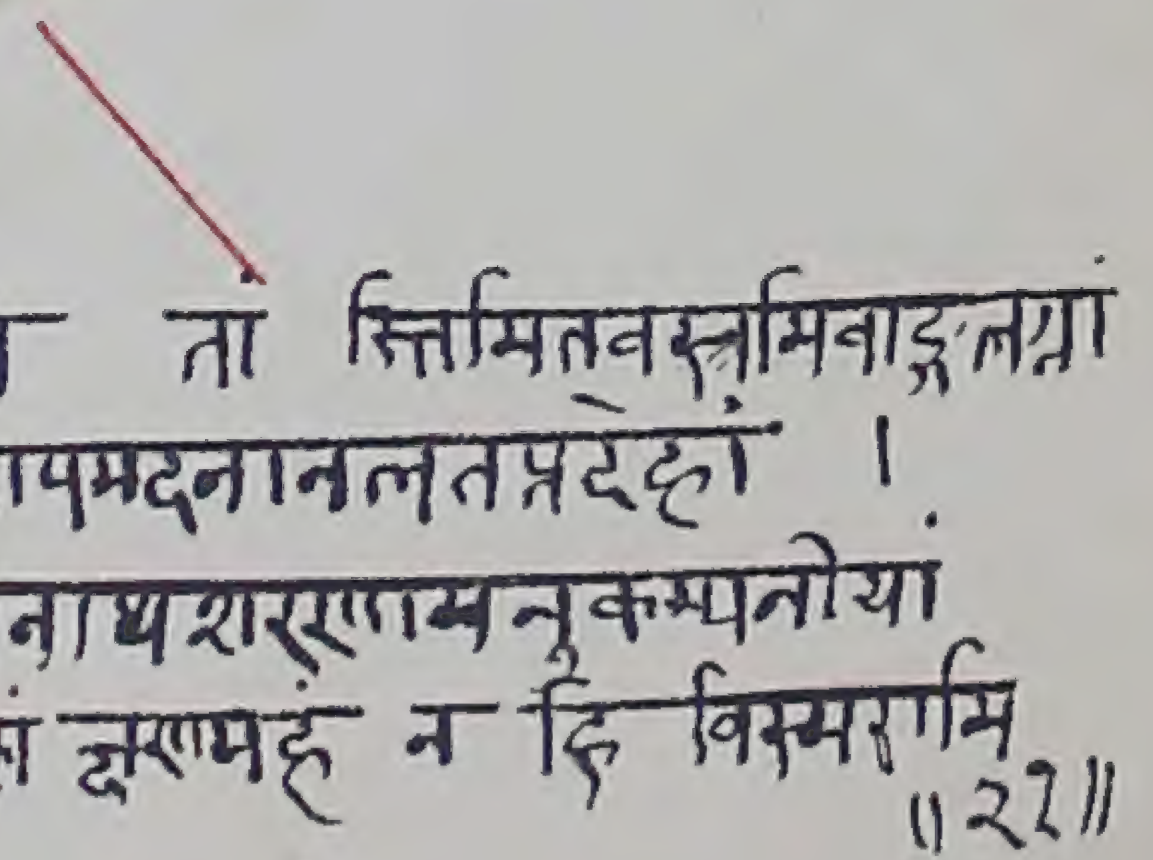 तां स्तिमितवस्त्रमिवाङ्गलग्नां
पमदनानलतप्तदेहां ।
नाथशरणामनुकम्पनीयां
क्षणमहं न हि विस्मरामि
॥२१॥